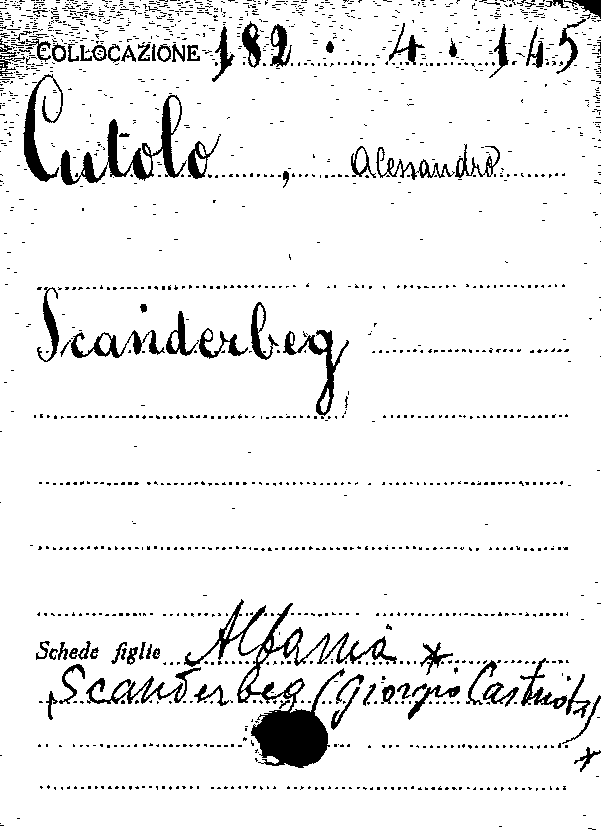 COLLOCAZIONE 182 . 4 . 145
Cutolo , Alessandro
Scanderbeg
Schede figlie Albania *
Scanderbeg (Giorgio Castriota)
*